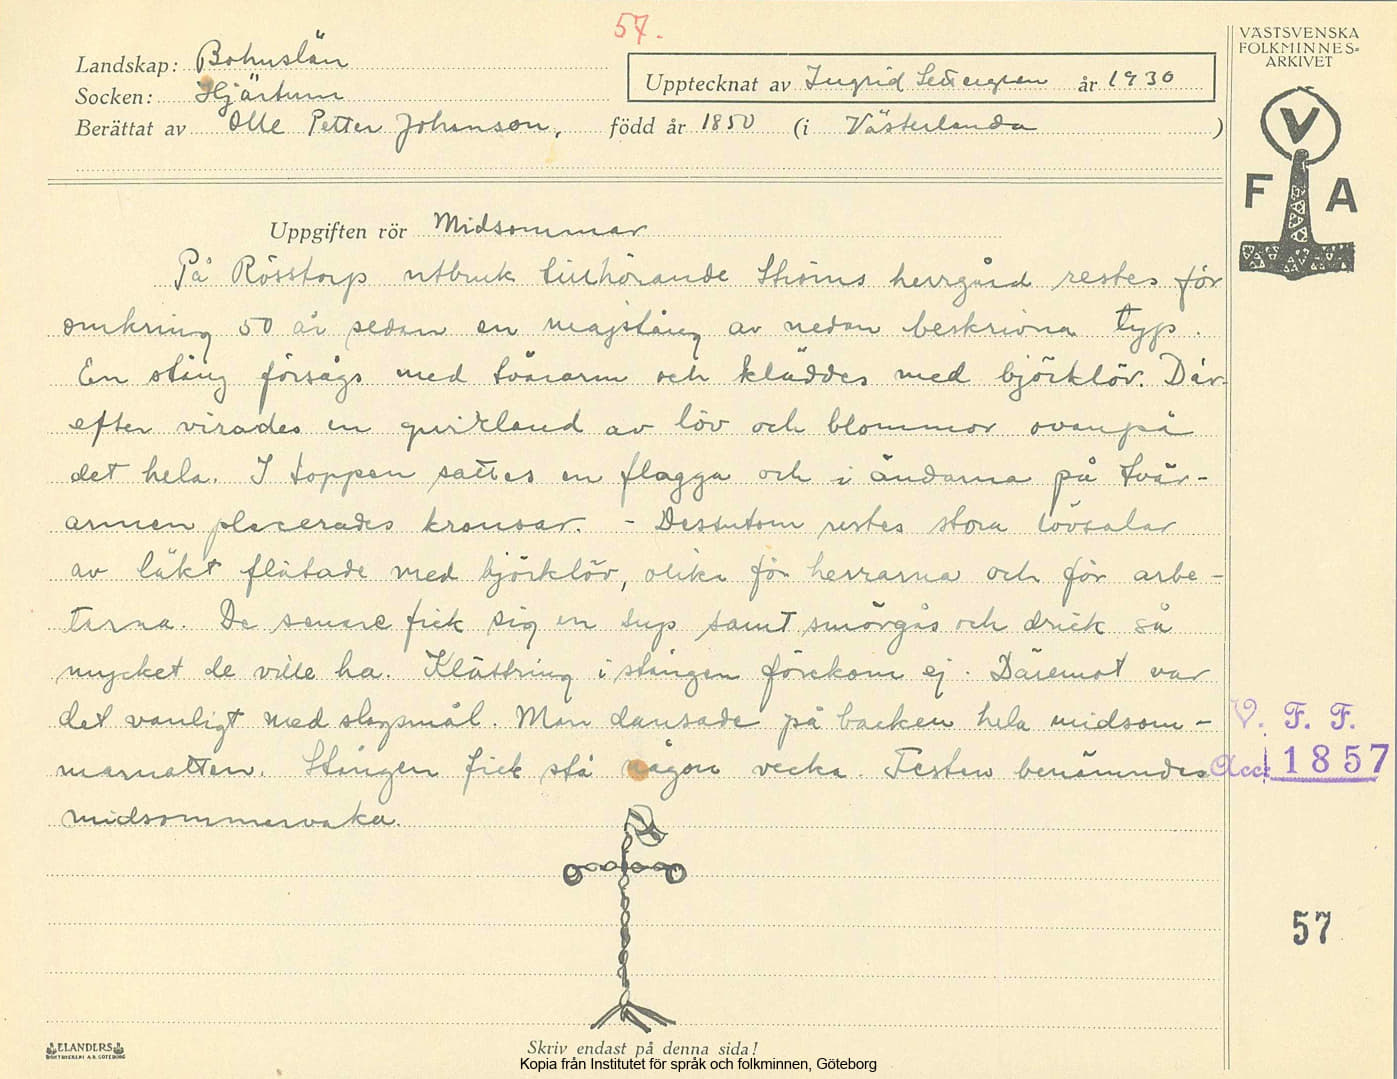 57.
VÄSTSVENSKA
FOLKMINNES-
ARKIVET
V
F A
Landskap: Bohuslän
Socken: Hjärtum
Upptecknat av Ingrid år 1930
Berättat av Olle Petter Johanson, född år 1850 (i Västerlanda )
Uppgiften rör Midsommar
På Rösstorp utbruk tillhörande Ströms herrgård restes för
omkring 50 år sedan en majstång av nedan beskrivna typ.
En stång försågs med tvärarm och kläddes med björklöv. Där-
efter virades en guirland av löv och blommor ovanpå
det hela. I toppen sattes en flagga och i ändarna på tvär-
armen placerades kransar. - Dessutom restes stora lövsalar
av läkt flätade med björklöv, olika för herrarna och för arbe-
tarna. De senare fick sig en sup samt smörgås och drick så
mycket de ville ha. Klättring i stången förekom ej. Däremot var
det vanligt med slagsmål. Man dansade på backen hela midsom-
marnatten. Stången fick stå någon vecka. Festen benämndes
midsommarvaka.
V. F. F.
Acc. 1857
57
ELANDERS
BOKTRYCKERI A.B. GÖTEBORG
Skriv endast på denna sida!
Kopia från Institutet för språk och folkminnen, Göteborg